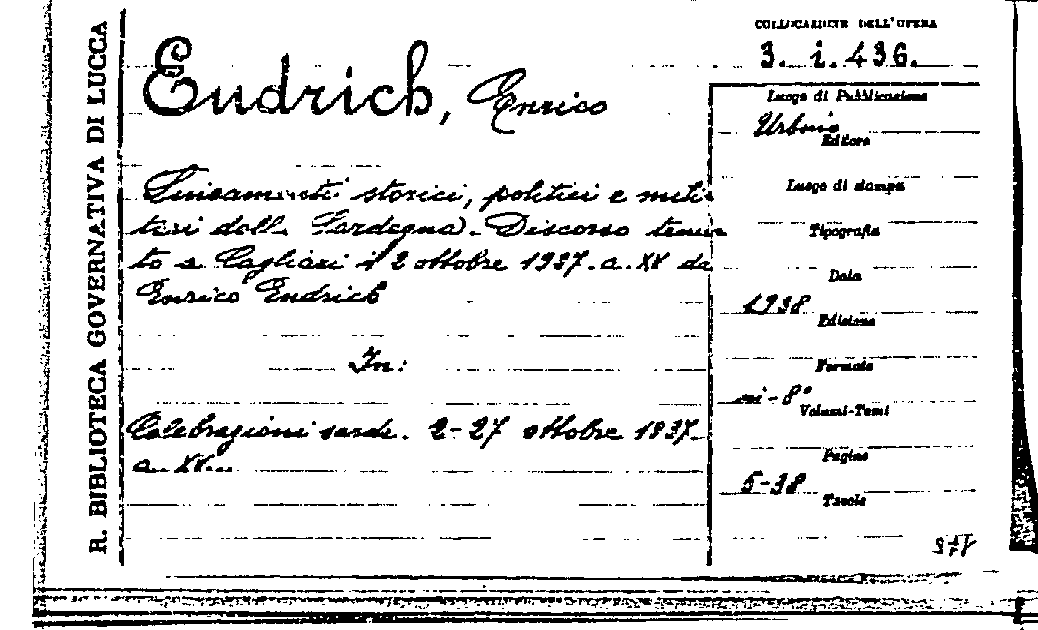 R. BIBLIOTECA GOVERNATIVA DI LUCCA
COLLOCAZIONE DELL'OPERA
3. i. 436.
Endrich, Enrico
storici, politici e mili-
tari della Sardegna. Discorso tenu-
to a Cagliari il 2 ottobre 1937. a. XV da
Enrico Endrich
In:
Celebrazioni sarde. 2-27 ottobre 1937.
a. XV.
Luogo di Pubblicazione
Urbino
Editore
Luogo di stampa
Tipografia
Data
1938
Edizione
Formato
in-8°
Volumi-Tomi
Pagine
5-38
Tavole